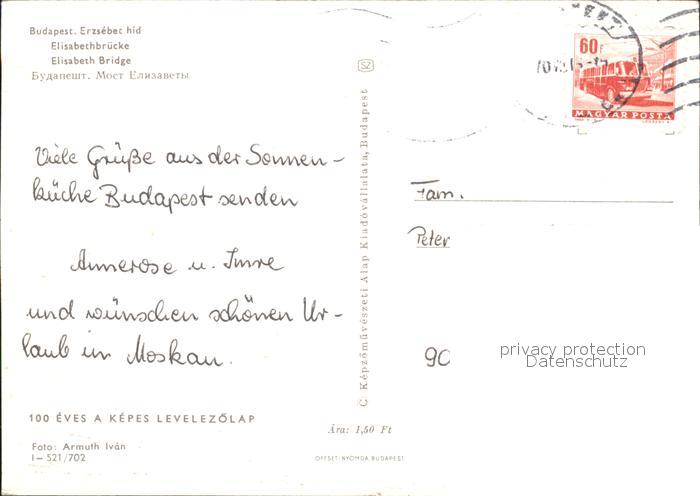 Budapest. Erzsébet híd
Elisabethbrücke
Elisabeth Bridge
Будапешт. Мост Елизаветы
Viele Grüße aus der Sonnen-
küche Budapest senden
Annerose u. Imre
und wünschen schönen Ur-
laub in Moskau.
100 ÉVES A KÉPES LEVELEZŐLAP
Foto: Armuth Iván
I-521/702
SZ
© Képzőművészeti Alap Kiadóvállalata, Budapest
Ára: 1,50 Ft
OFFSET-NYOMDA BUDAPEST
60f
MAGYAR POSTA
Fam.
Peter
90
privacy protection
Datenschutz